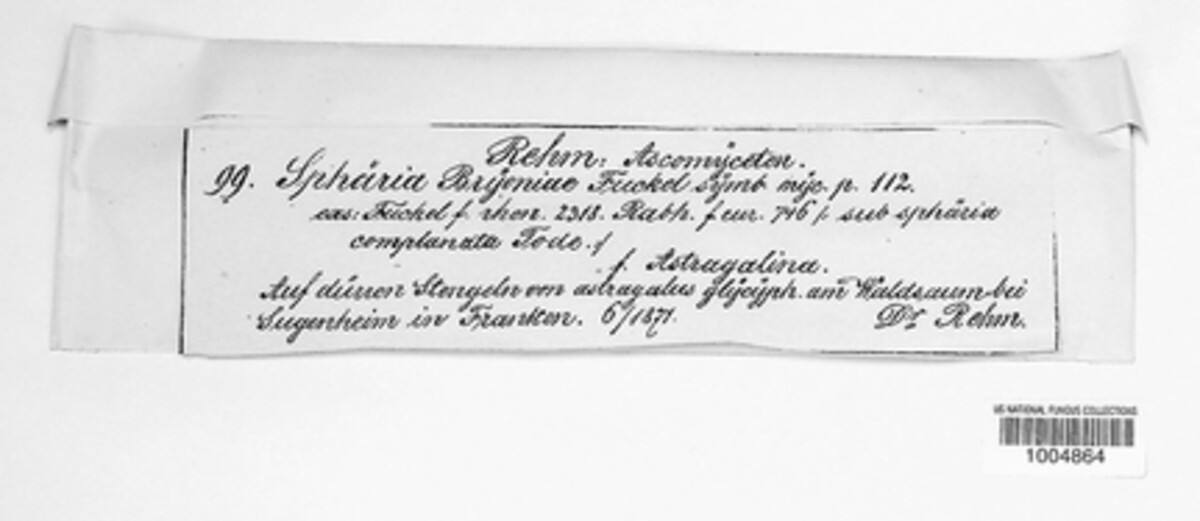 Rehm: Ascomÿceten.
99. Sphäria Brÿoniae Fuckel sÿmb mÿc. p. 112.
exs: Fuckel f. rhen. 2318. Rabh. f eur. 746 /: sub sphäria
complanata Tode. :/
f. Astragalina.
Auf dürren Stengeln von astragalus glÿcÿph. am Waldsaum bei
Sugenheim in Franken. 6/1871. Dr Rehm.
US NATIONAL FUNGUS COLLECTIONS
1004864